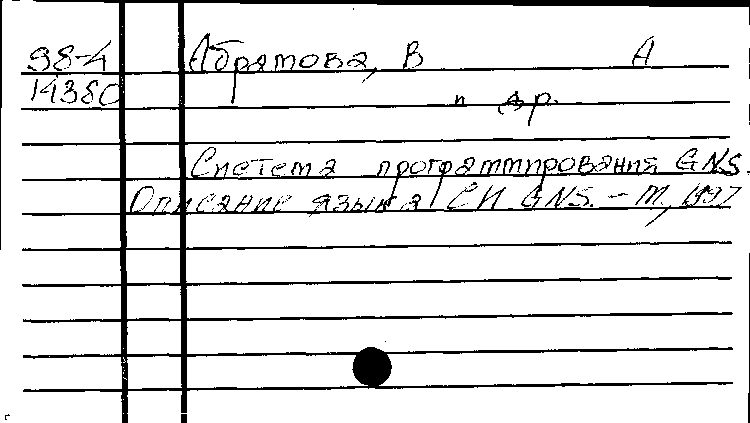 98-4 Абрамова, В А
14380 и др.
Система программирования GNS.
Описание языка СИ GNS. – М, 1997